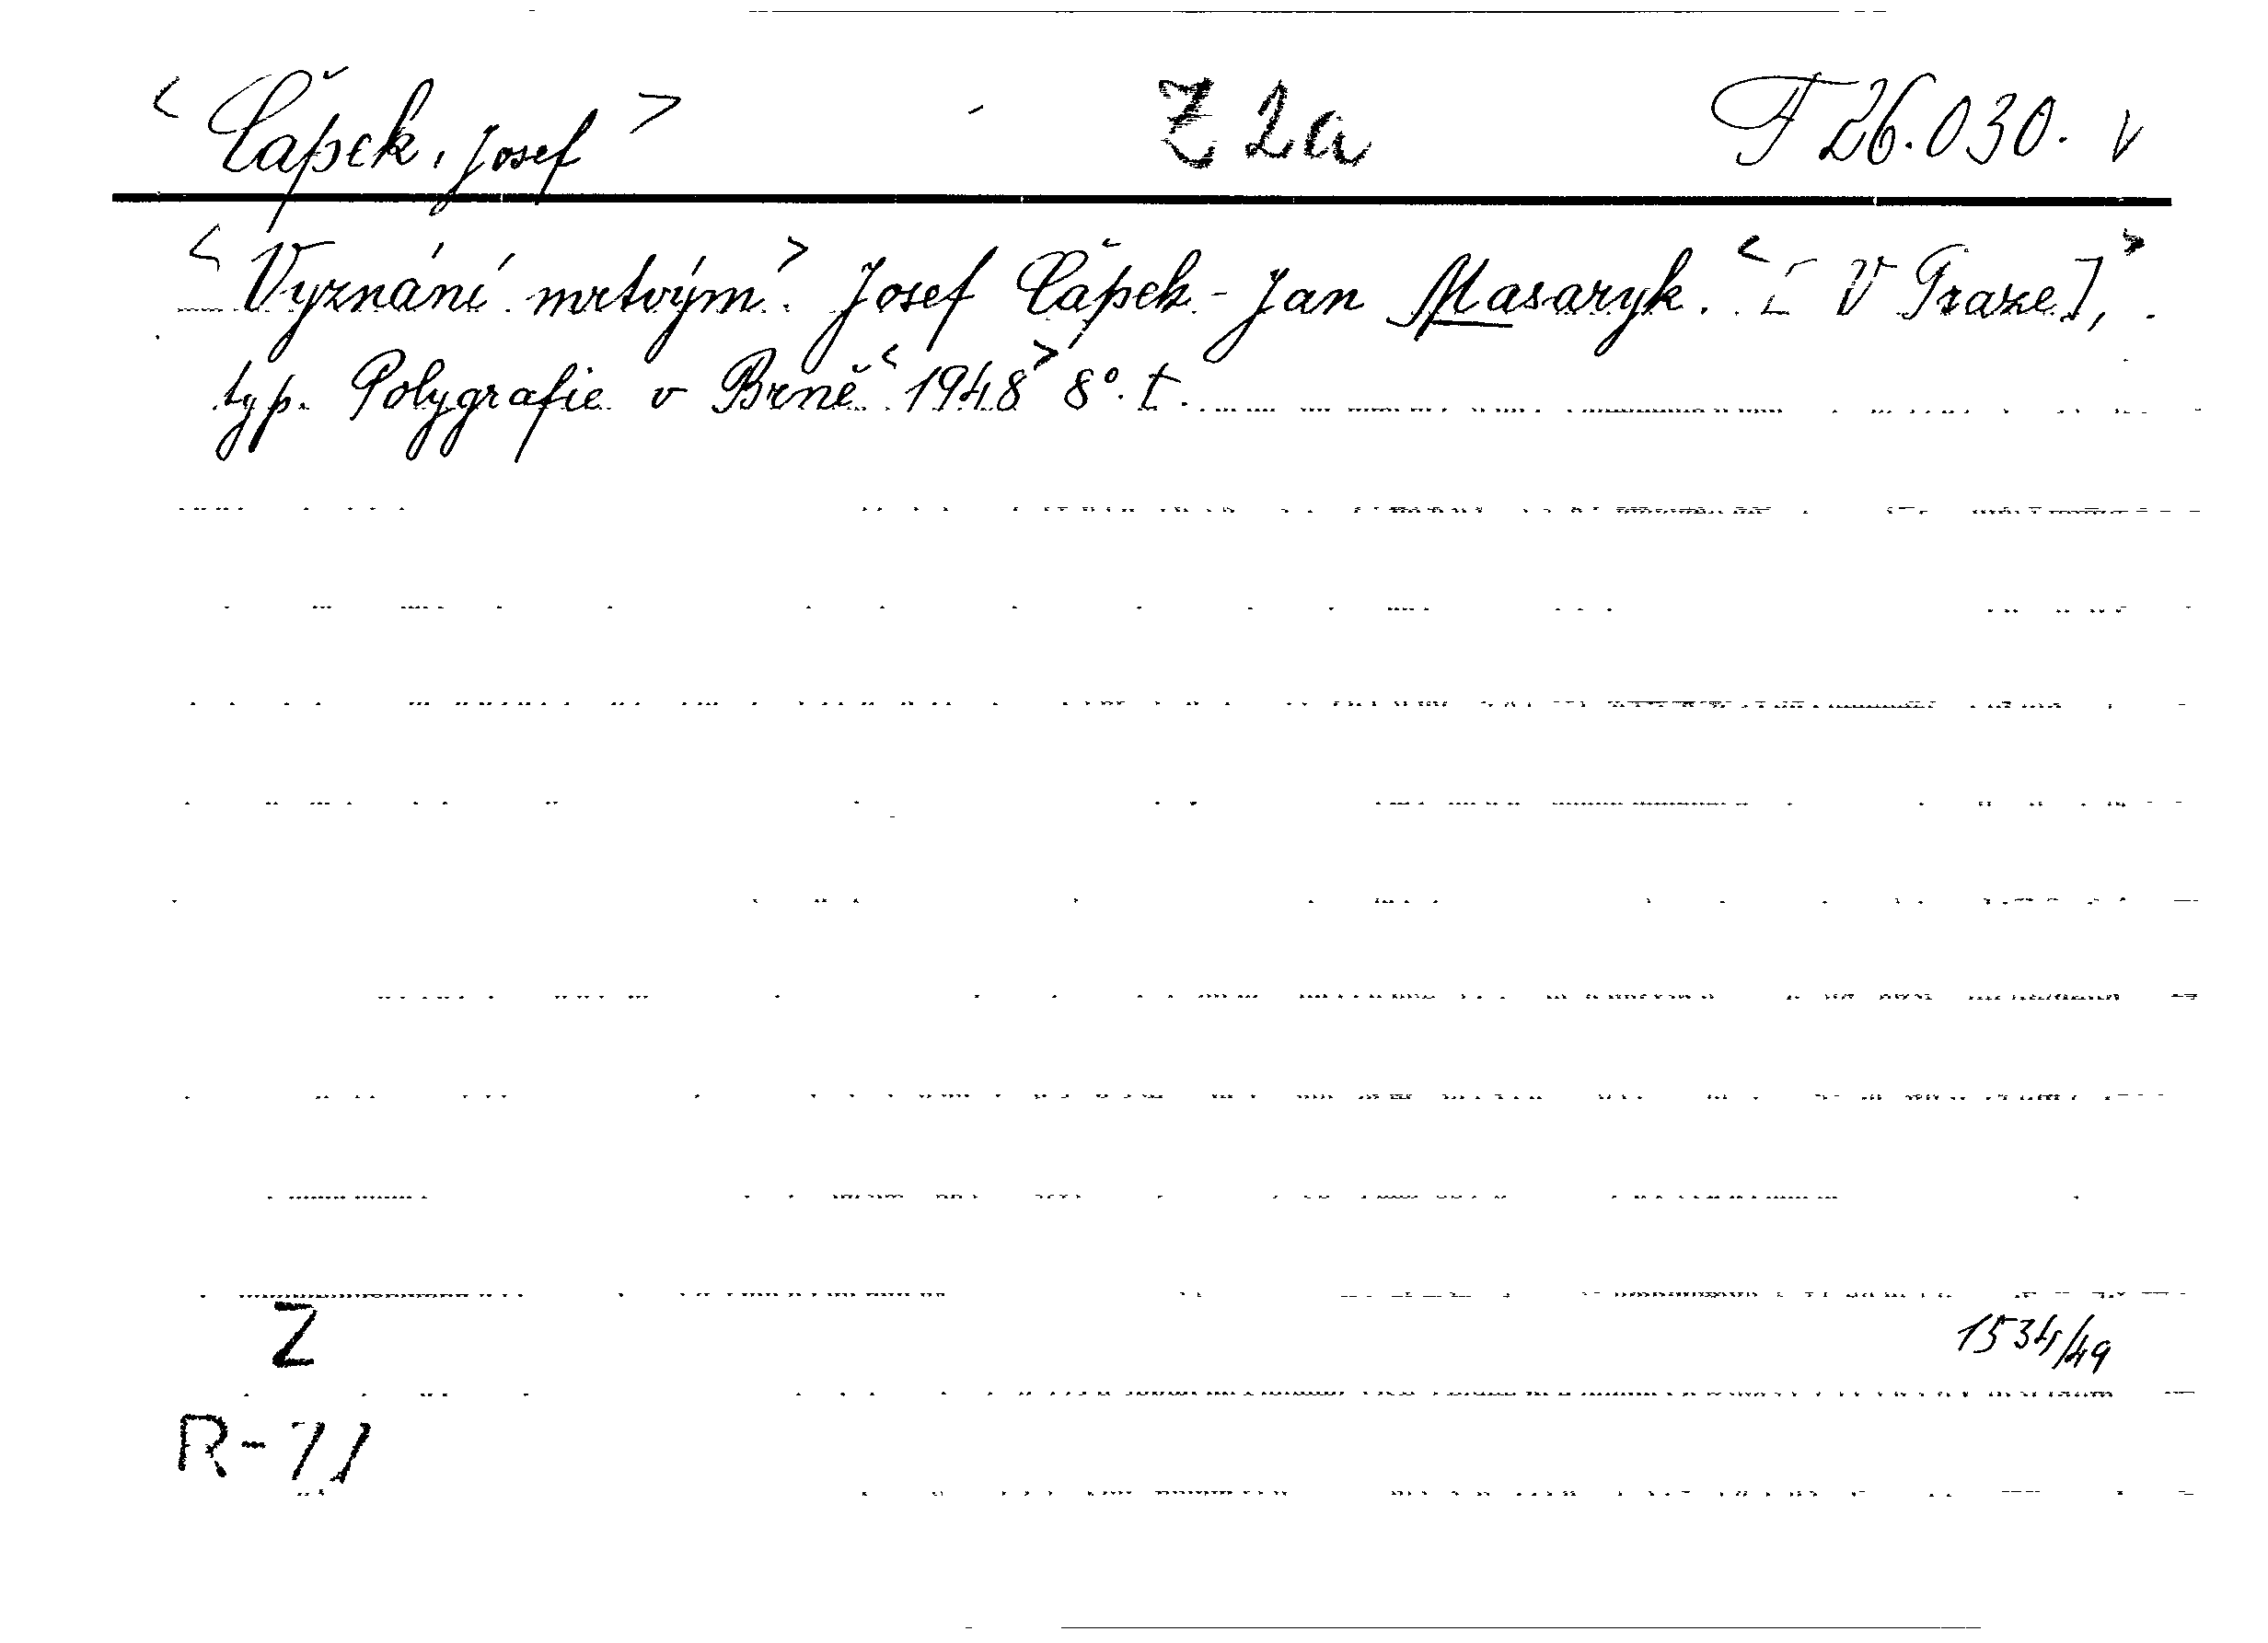 < Čapek, Josef > Z 2a T 26.030. v
< Vyznání mrtvým. > Josef Čapek - Jan Masaryk. < [V Praze], >
typ. Polygrafie v Brně < 1948 > 8°. t.
Z
1534/49
R-71